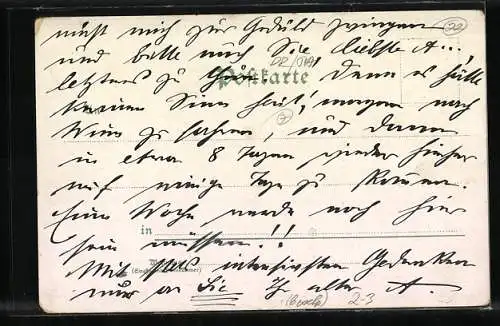 nicht mich zur Geduld zwingen
und bitte auch Sie liebste A...,
letzteres zu Denn es hätte
Postkarte
keinen Sinn heut, morgen nach
Wien zu fahren, und dann
in etwa 8 Tagen wieder hieher
auf einige Tage zu kommen.
Eine Woche werde noch hier
in
sein müssen!!
Mit intensivsten Gedenken
nur an Sie Ihr alter A.
2-3